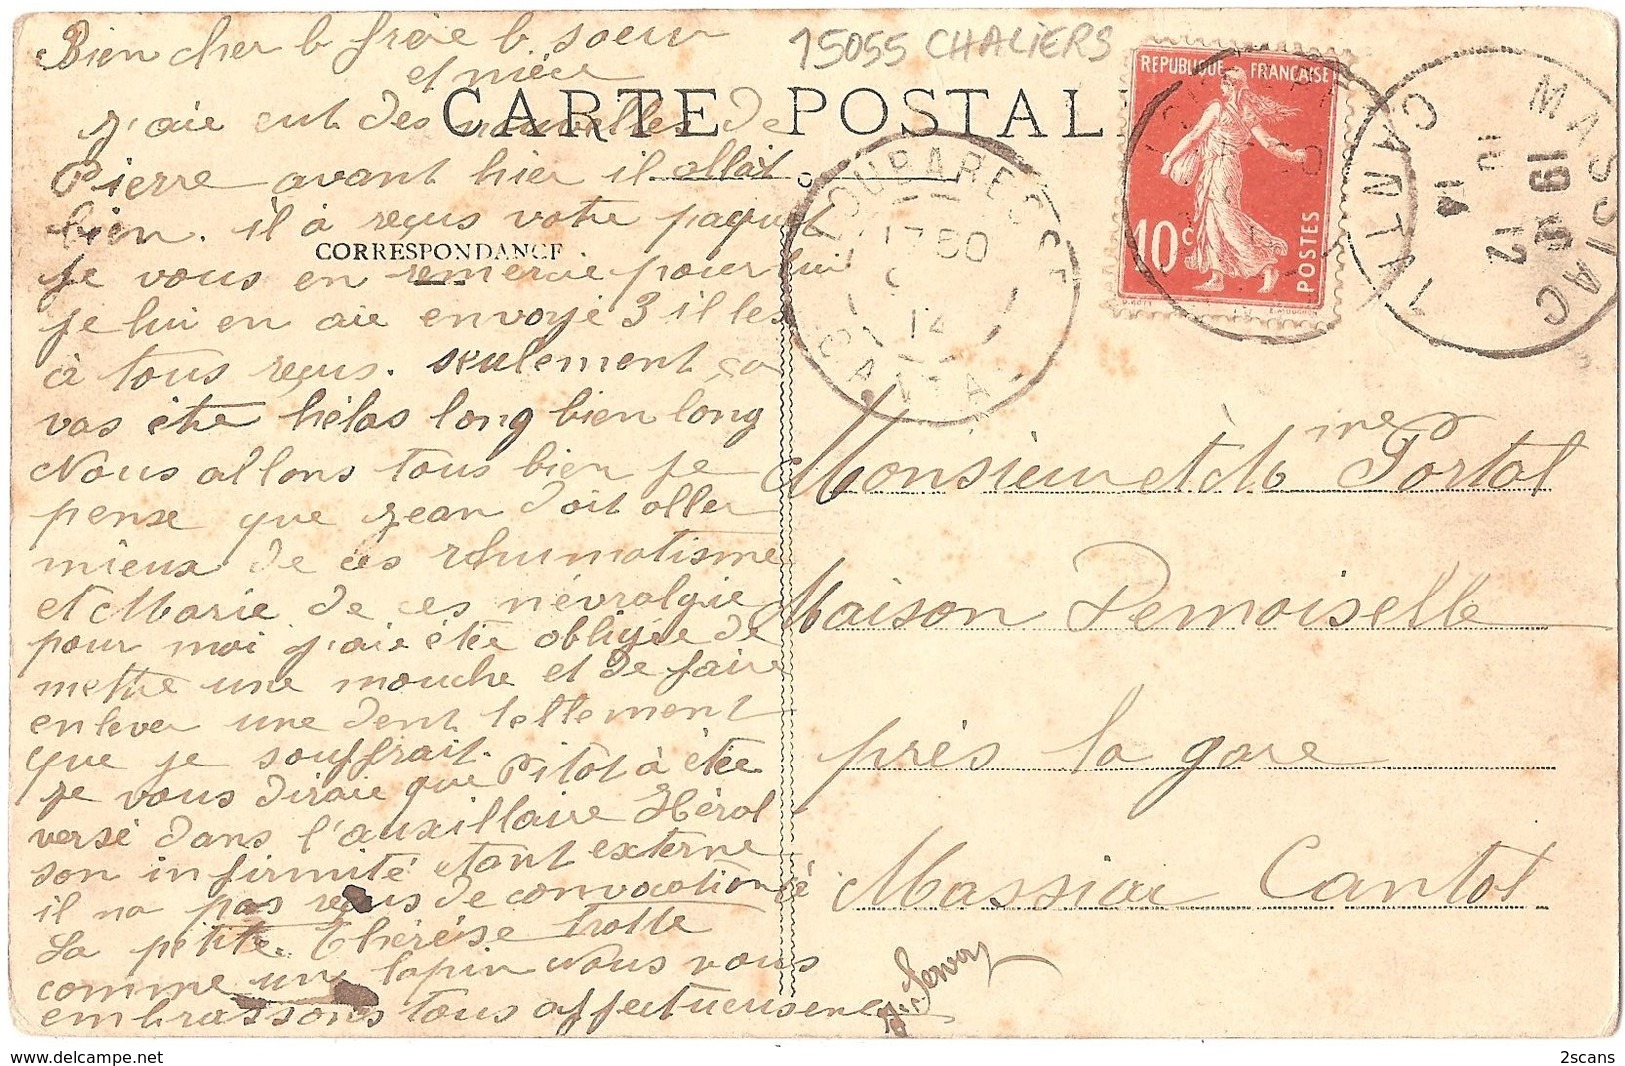 Bien cher b frère b. soeur
et nièce
15055 CHALIERS
CARTE POSTAL
REPUBLIQUE FRANÇAISE
10c
POSTES
LOUBARESSE
17 30
14
CANTAL
MASSIAC
19 15
12
14
CANTAL
j'aie eut des nouvelles de
Pierre avant hier il allait
bien. il à reçus votre paquet
CORRESPONDANCE
je vous en remercie pour lui
je lui en aie envoyé 3 il les
à tous reçus. seulement ça
vas être hélas long bien long
Nous allons tous bien je
pense que jean doit aller
mieux de ces rhumatisme
et Marie de ces névralgie
pour moi j'aie étée obligée de
mettre une mouche et de faire
enlever une dent tellement
que je souffrait.
je vous diraie que Pitot à étée
versé dans l'auxillaire Hérol
son infirmité etant externe
il na pas reçus de convocation
La petite Thérèse trotte
comme un lapin Nous vous
embrassons tous affectueuseme
J. Servoy
Monsieur et Mme Portal
Maison Demoiselle
près la gare
à Massiac Cantal
2scans